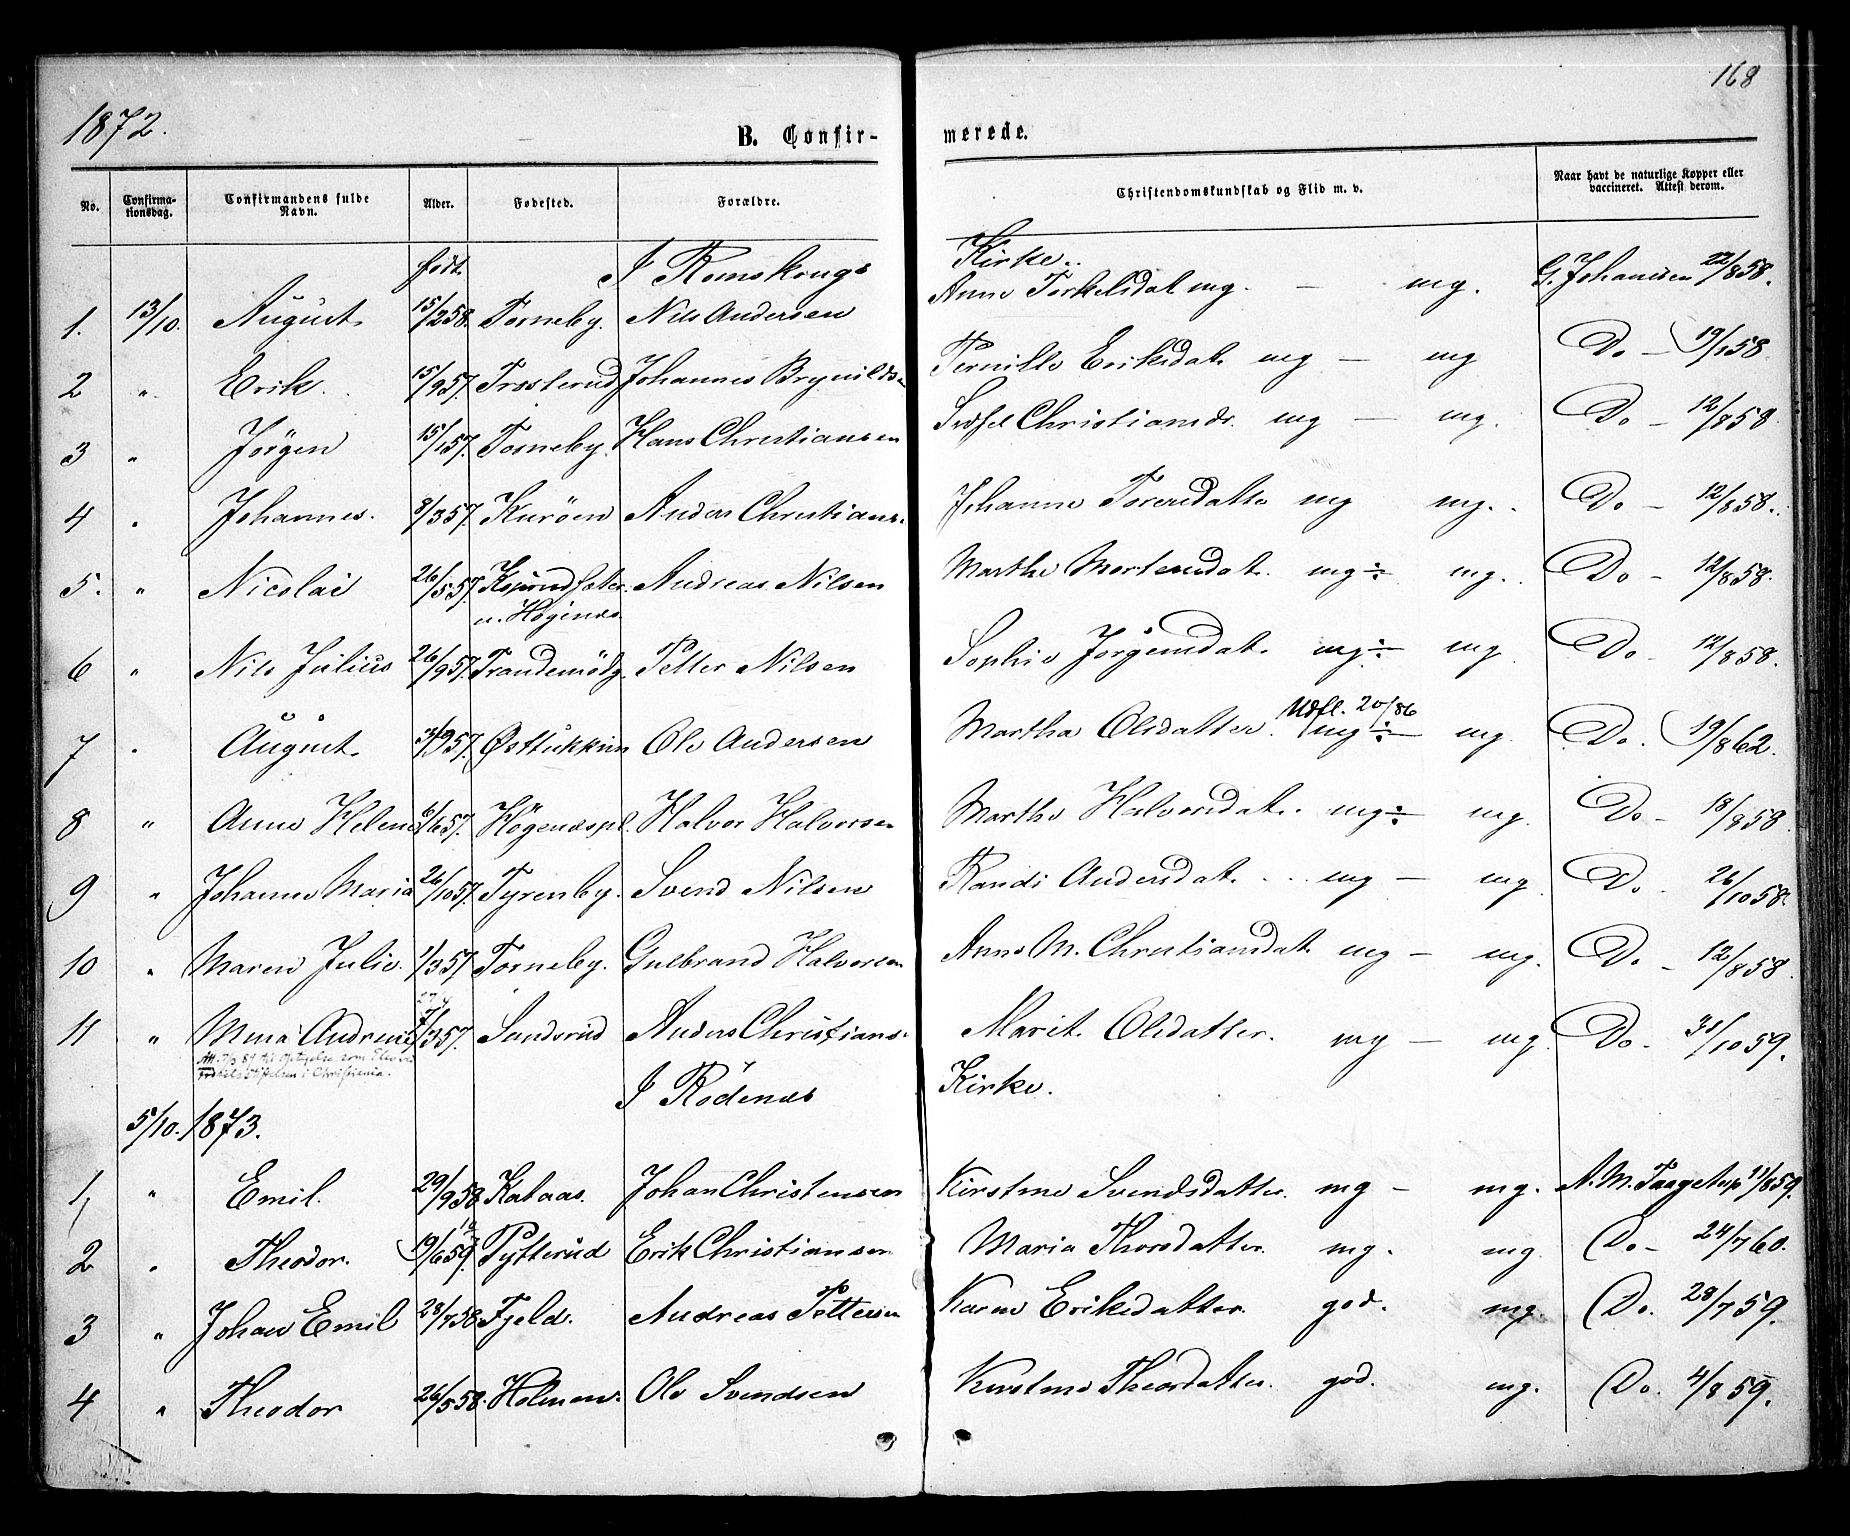 168
1872.
B. Confir- merede.
No. Confirma-tionsdag. Confirmandens fulde Navn. Alder. Fødested. Forældre. Christendomskundskab og Flid m. v. Naar havt de naturlige Kopper eller vaccineret. Attest derom.
født I Romskougs Kirke..
1. 13/10. August. 15/2 58. Torneby. Nils Andersen Anne Torkelsdat mg. — mg. G. Johansen 22/8 58.
2 " Erik. 15/9 57. Trosterud Johannes Brynilds Pernille Eriksdat. mg — mg Do — 19/1 58
3 " Jørgen 15/1 57. Torneby. Hans Christiansen Christiansd. mg — mg. Do — 12/8 58
4 " Johannes. 8/3 57. Kurøen Anders Christians. Johanne Toresdatte mg mg. Do — 12/8 58.
5. " Nicolai 26/5 57. Andreas Nilsen Marthe Mortensdat. mg÷ mg. Do — 12/8 58.
u. Høgenæs
6 " Nils Julius 26/9 57. Petter Nilsen Sophie Jørgensdat. mg÷ mg Do — 12/8 58.
Udfl. 20/86
7 " August. 57. Østtukkun Ole Andersen Martha Olsdatter. mg÷ mg Do. 19/8 62.
8 " Anne Helene 6/6 57. Høgenæspl. Halvor Halvorsen Marthe Halvorsdat. mg÷ mg. Do — 18/8 58.
9 " Johanne Maria 26/10 57. Tyrenby. Svend Nilsen Randi Andersdat. mg — mg Do. 26/10 58.
10 " Maren Julie. 1/3 57 Torneby. Gulbrand Halvorsen Anne M. Christiansdat. mg — mg. Do — 12/8 58.
11 " Mina Andrine 7/3 57. Sandsrud Anders Christians. Marit Olsdatter. mg — mg. Do. 31/10 59.
i Christiania.
I Rødenæs Kirke.
5/10. 1873.
1, " Emil. 29/9 58 Kataas. Johan Christensen Kirstine Svendsdatter. mg — mg. A. M. Taagstup 11/8 59.
2 " Theodor. 19/6 59. Tytterud Erik Christiansen Maria Thorsdatter. mg. mg. Do — 24/7 60.
3 " Johan Emil 28/7 58 Fjeld. Andreas Pettersen Karen Eriksdatter. god. mg. Do. 28/7 59.
4 " Theodor 26/5 58. Holmen. Ole Svendsen Kirstine Theodatter. god. mg. Do. 4/8 59.